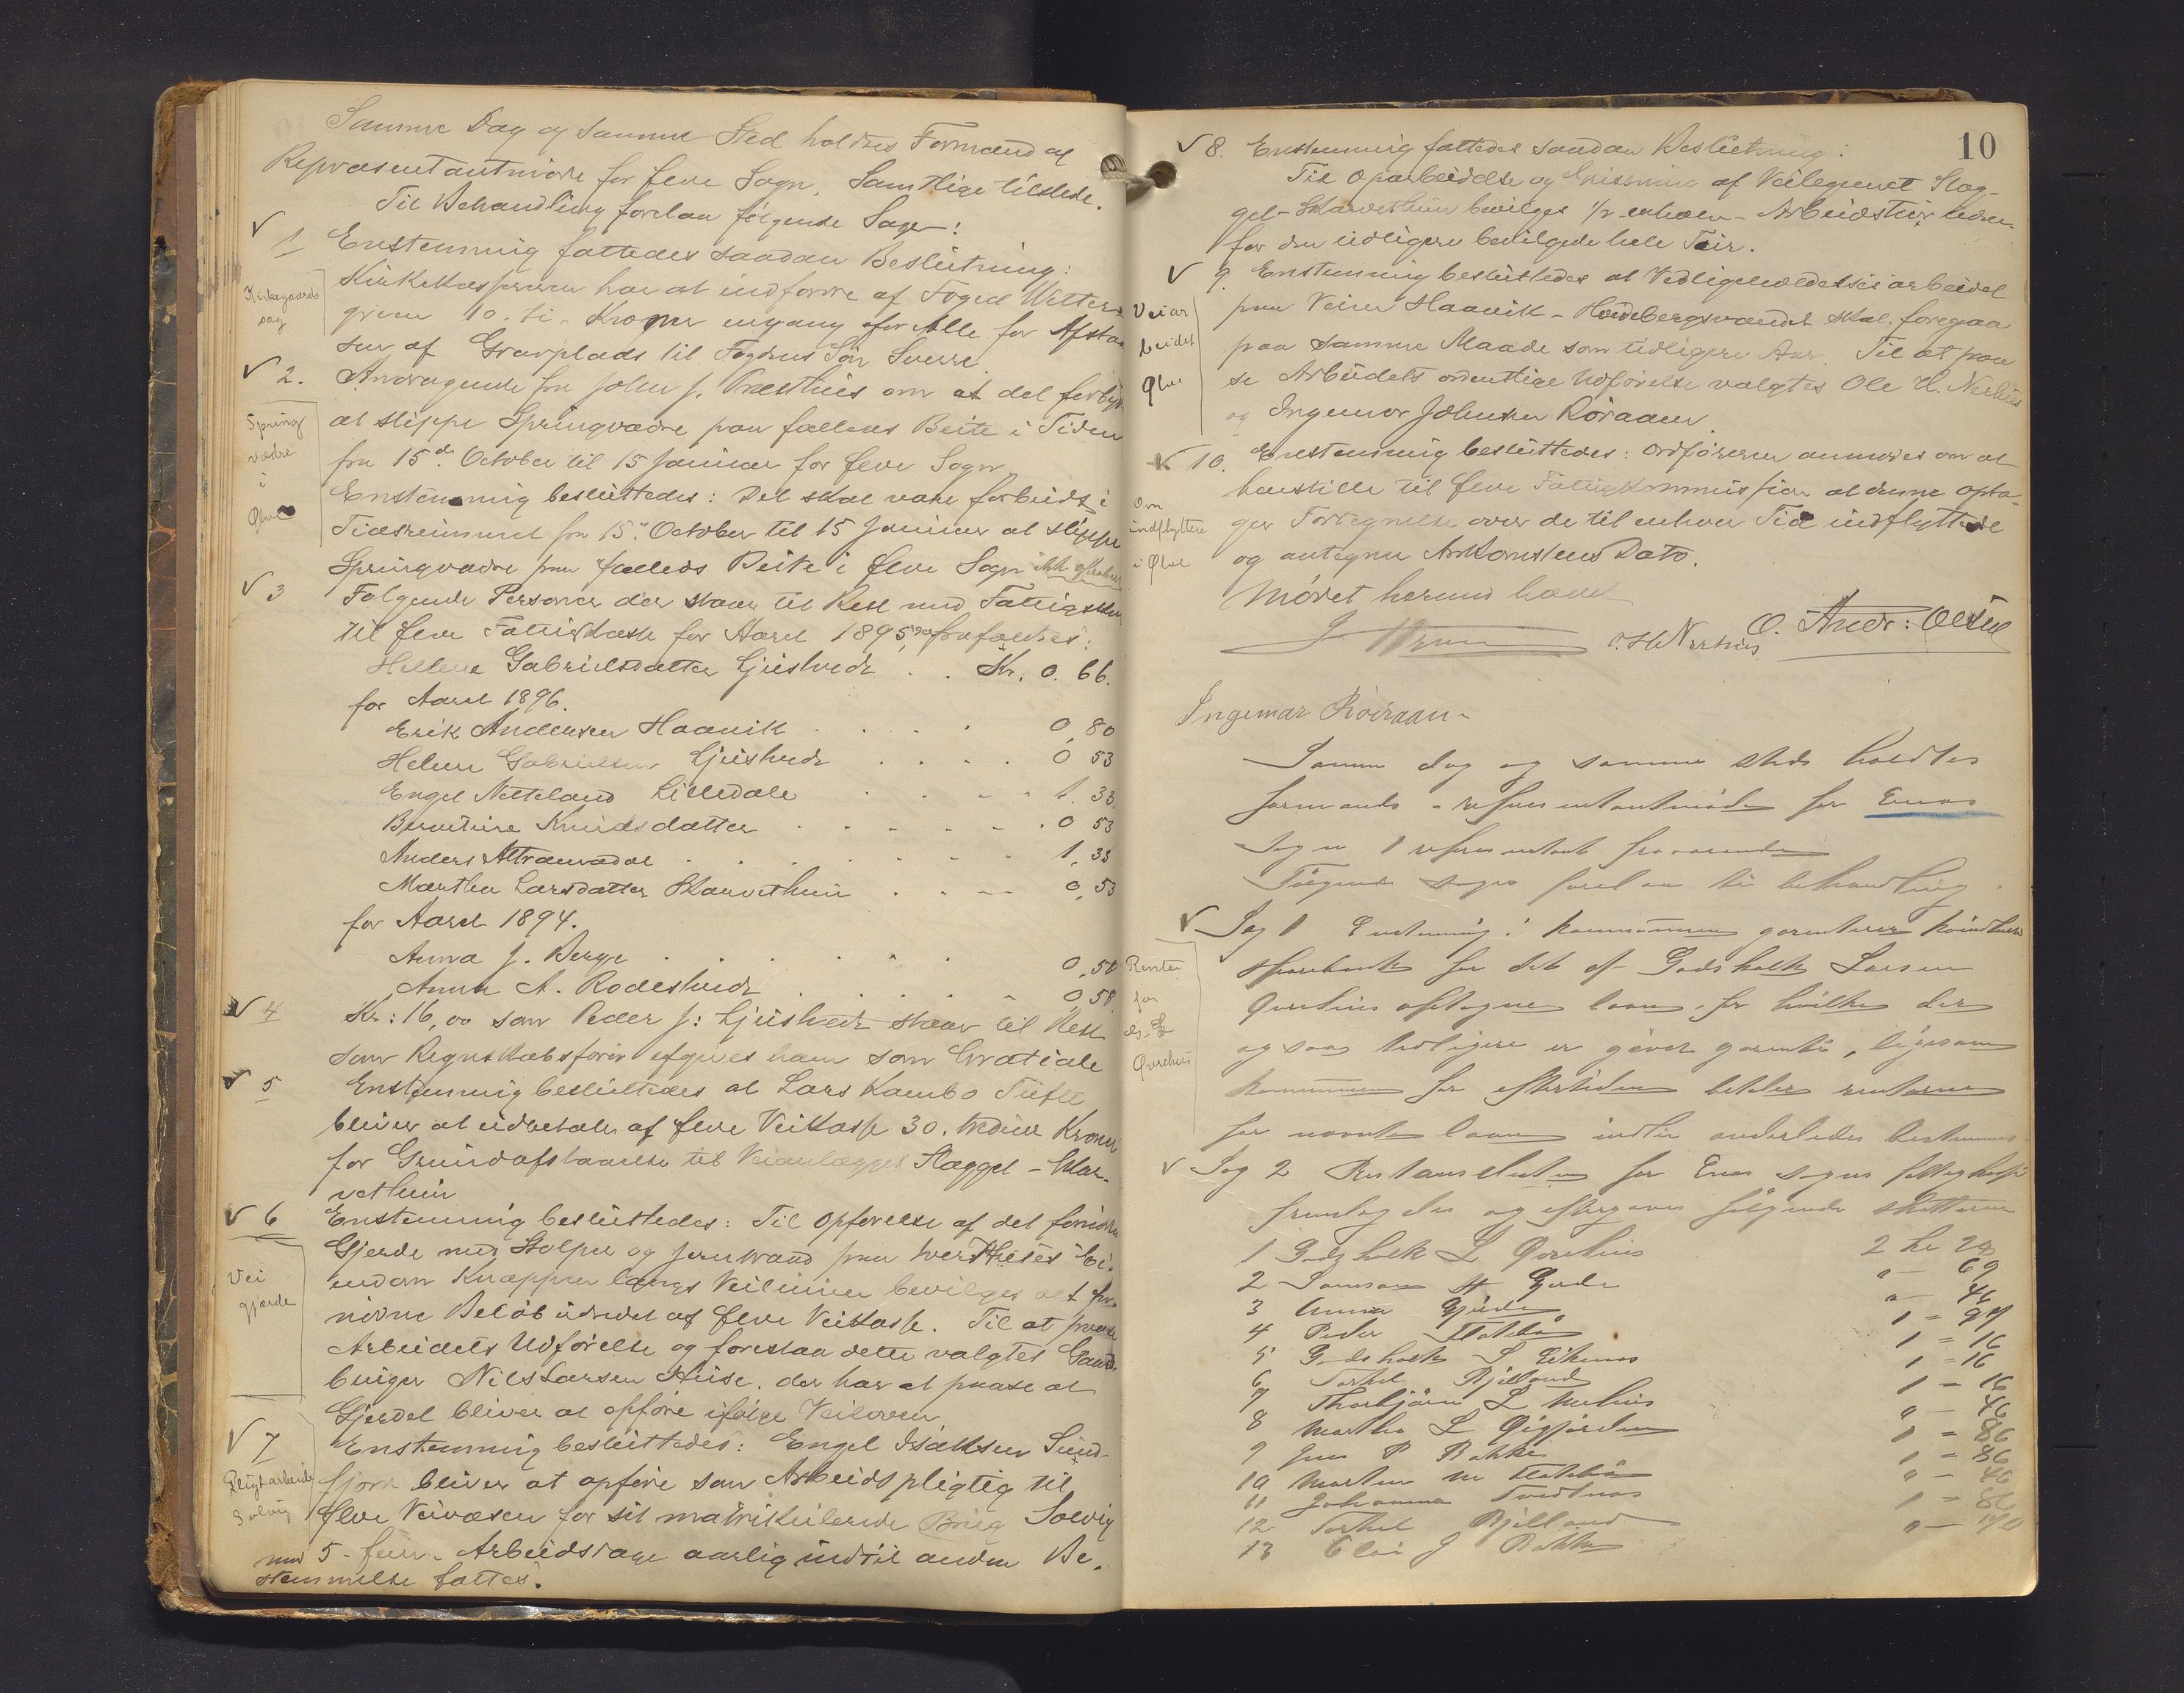 Samme Dag og samme Sted holdtes Formand og
Repræsentantmøde for Ølve Sogn. Samtlige tilstede.
Til Behandling forelaa følgende Sager:
1 Enstemmig fattedes saadan Beslutning:
Kirkegaards
sag
Kirkekassereren har at indfordre af Foged Wetter-
green 10 - ti - Kroner engang for Alle for Afstaa
else af Gravplads til Fogdens Søn Sverre.
2. Andragende fra John J. Præsthus om at det forbydes
Spring
vædre
i
Ølve
at slippe Springvædre paa fælleds Beite i Tiden
fra 15de October til 15 Januar for Ølve Sogn
Enstemmig besluttedes: Det skal være forbudt i
Tidsrummet fra 15. October til 15 Januar at slippe
Springvædre paa fælleds Beite i Ølve Sogn
3 Følgende Personer der staar til Rest med Fattigskat
til Ølve Fattigkasse for Aaret 1895 frafaldtes:
Hellene Gabrielsdatter Ljushvedt . . Kr. 0. 66.
for Aaret 1896.
Erik Andersen Haavik . . . . 0,80
Helene Gabrielsen Ljushvedt . . . . 0 53
Engel Netteland Lilledale . . . . 1. 33.
Berentine Knudsdatter . . . . . 0 53
Anders Altræmadal . . . . . 1, 33
Martha Larsdatter Skarvethun . . . . 0,53
for Aaret 1894.
Anna J. Berge . . . . . 0,50
Anna A. Rodeshvedt . . . . . 0,50
4 Kr: 16,00 som Peder J: Ljushvedt staar til Rest
som Regnskabsfører efgives ham som Gratiale
5 Enstemmig besluttedes at Lars Kambo Tufte
bliver at udbetale af Ølve Veikasse 30. tredive Kroner
for Grundafstaaelse til Veianlægget Slaggel - Skar-
vethun
6 Enstemmig besluttedes: Til Opførelse af det fornødne
Vei
gjærde
Gjerde med Stolper og Jerntraad paa Eie-
endom Knappen langs Veilinien bevilges det for-
nødne Beløb udredet af Ølve Veikasse. Til at paase
Arbeidets Udførelse og forestaa dette valgtes Gaard-
bruger Nils Larsen Huse. der har at paase at
Gjerdet bliver at opføre ifølge Veiloven
7 Enstemmig besluttedes: Engel Isaksen Sund-
Pligtarbeide
Solvig
fjorn bliver at opføre som Arbeidspligtig til
Ølve Veivæsen for sit matrikulerede Brug Solvig
med 5 - fem - Arbeidsdage aarlig indtil anden Be-
stemmelse fattes.
10
8. Enstemmig fattedes saadan Beslutning:
Til Oparbeidelse og Grusning af Veilegemet Slag-
gel - Skarvethun bevilges 1/2 - enhalv - Arbeidstur uden-
for den tidligere bevilgede hele Tur.
9. Enstemmig besluttedes at Vedligeholdelsesarbeidet
Veiar
beidet
Ølve
paa Veien Haavik - Høidebergsvandet skal foregaa
paa samme Maade som tidligere Aar. Til at paa
se Arbeidets ordentlige Udførelse valgtes Ole H. Nerhus
og Ingemar Johnsen Røiraaen.
10. Enstemmig besluttedes: Ordføreren anmodes om at
Om
indflyttere
i Ølve
henstille til Ølve Fattigkommission at denne opta-
ger Fortegnelse over de til enhver Tid indflyttede
og antegne Ankomstens Dato.
Mødet hermed hævet
O. H. Nerhus O. Andr: Olsen
Ingemar Røiraaen
Samme dag og samme sted holdtes
formands - representantmøde for Enæs
Sogn 1 representant fraværende
Følgende sager forelaa til behandling
Sag 1 Enstemmig: Kommunen garanterer Kvindherr
Renter
for
G. L.
Øvrehus
Sparebank for det af Godskalk Larsen
Øvrehus optagne laan, for hvilke der
ogsaa tidligere er given garanti, ligesom
kommunen for eftertiden betaler renterne
for nævnte laan indtil anderledes bestemmes
Sag 2 Restanselisten for Enæs sogns fattigkasse
fremlagdes og eftergaves følgende skatter
1 Godskalk L Øvrehus 2 kr 28
2 Samson H Gjerde " — 69
3 Anna Gjerde " — 46
4 Peder Flatebø 1 = 94
5 Godskalk S Eikenæs 1 = 16
6 Torkel Kjelland 1 = 16
7 Thorbjørn L Nerhus 1 — 16
8 Martha L Øifjorden " — 46
9 Jens P Bakke 1 = 86
10 Morten M Flatebø 1 = 86
11 Johanna Tvedtnæs " — 46
12 Torkel Kjelland 1 = 86
13 Elai J Bakke